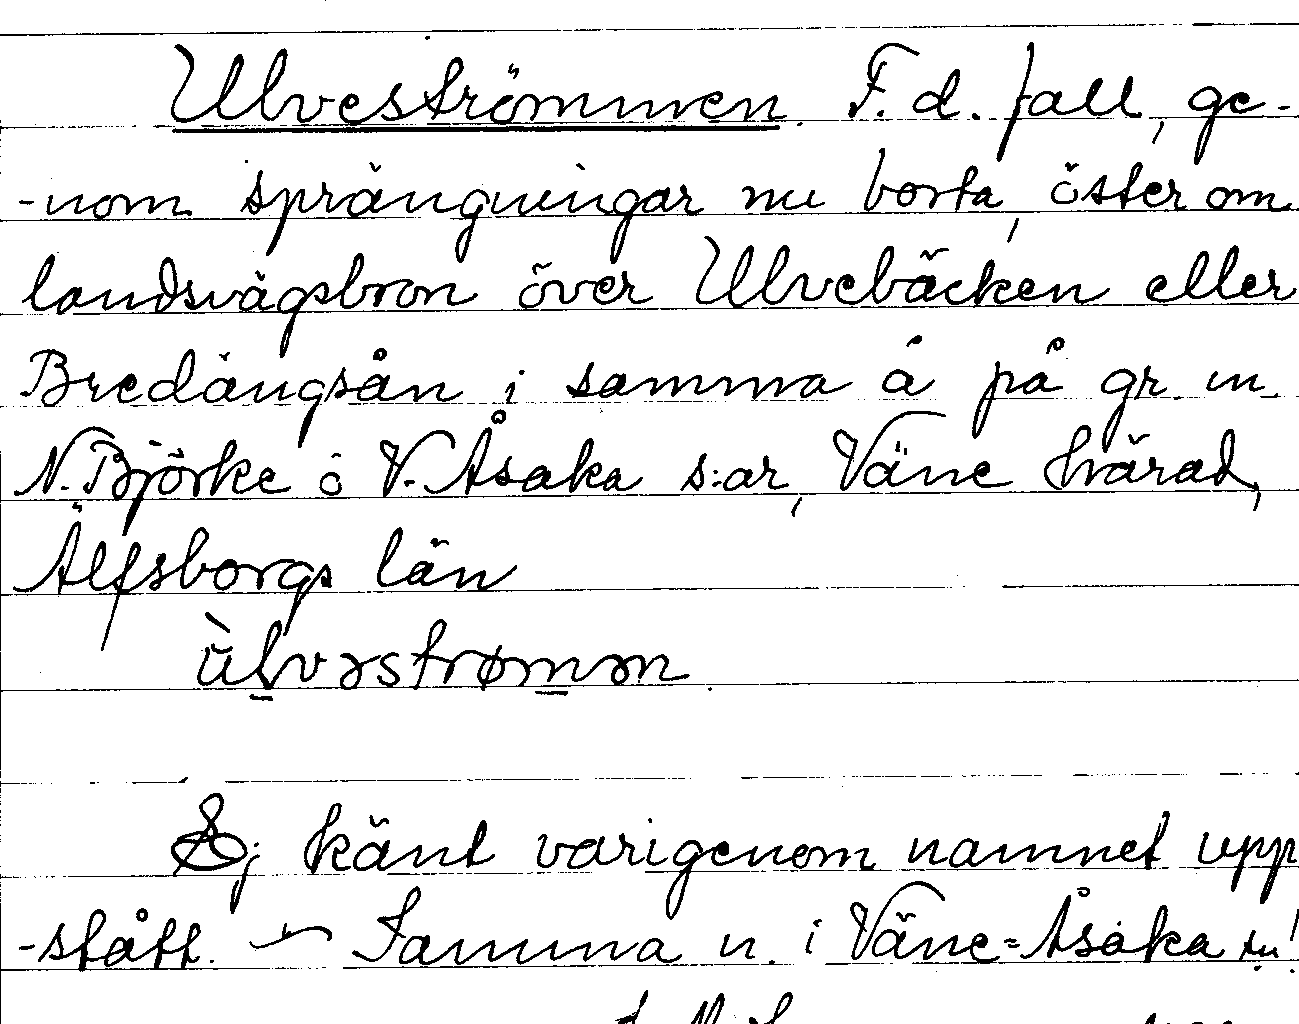 Ulveströmmen. F. d. fall, ge-
-nom sprängningar nu borta, öster om
landsvägsbron över Ulvebäcken eller
Bredängsån i samma å på gr. m.
N. Björke o V. Åsaka s:ar, Väne härad,
Älfsborgs län
ùl̲vəstrøm̲ən.
Ej känt varigenom namnet upp
-stått. — Samma n. i Väne=Åsaka sn!